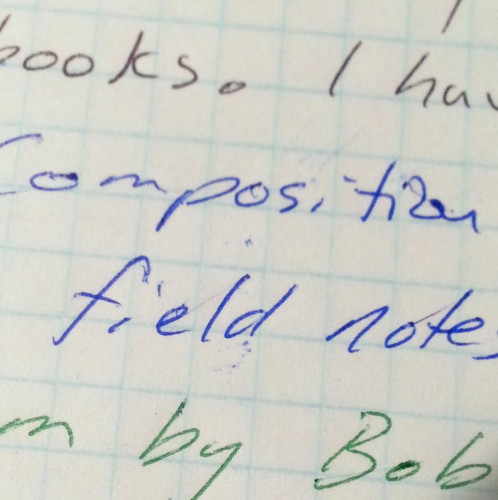 books. I hav
Composition
field notes
m by Bob